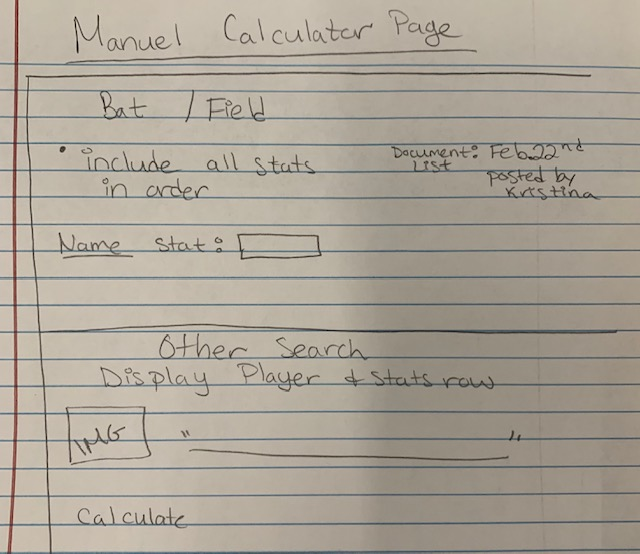 Manuel Calculator Page
Bat / Field
• include all stats
in order
Document: Feb. 22nd
List
posted by
Kristina
Name Stat:
Other Search
Display Player & Stats row
IMG " "
Calculate